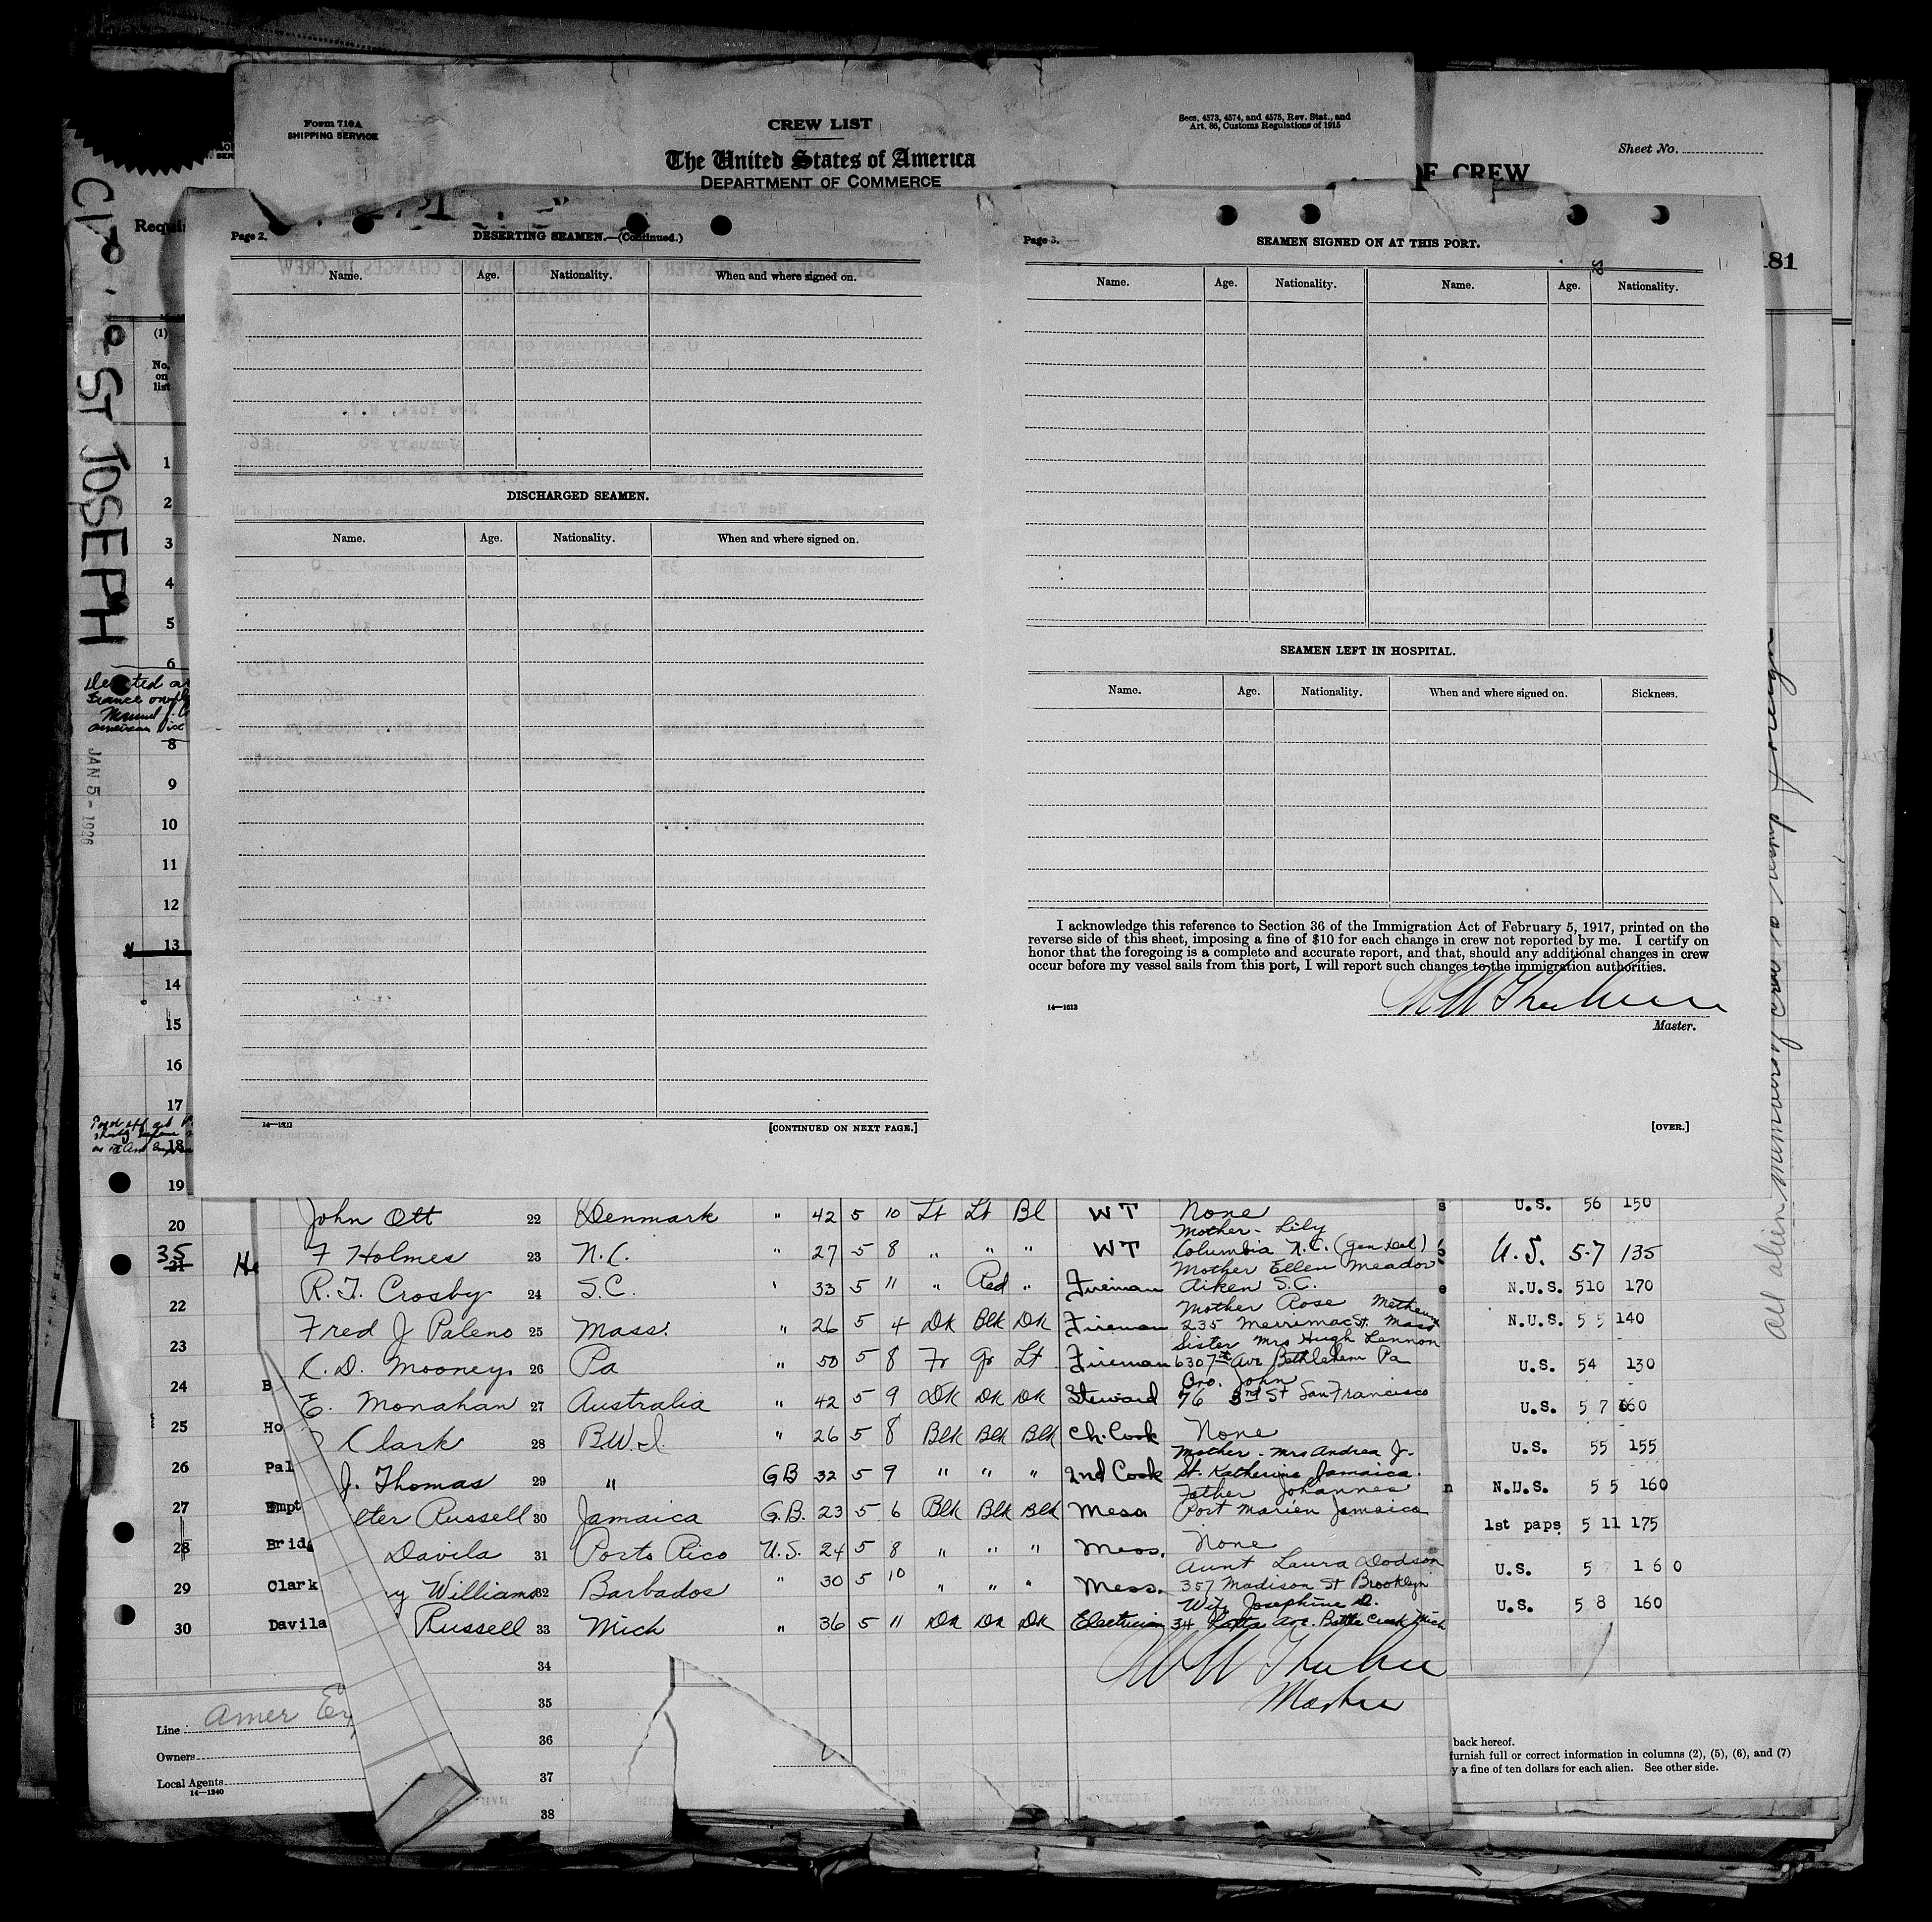 Form 710A
SHIPPING SERVICE
CREW LIST
The United States of America
DEPARTMENT OF COMMERCE
Secs. 4573, 4574, and 4575, Rev. Stat., and
Art. 86, Customs Regulations of 1915
Sheet No.
OF CREW
181
CITY ST JOSEPH
(1)
No.
on
list
Page 2.
DESERTING SEAMEN.—(Continued.)
Name. Age. Nationality. When and where signed on.
DISCHARGED SEAMEN.
Name. Age. Nationality. When and where signed on.
14—1213
[CONTINUED ON NEXT PAGE.]
Page 3.
SEAMEN SIGNED ON AT THIS PORT.
Name. Age. Nationality. Name. Age. Nationality.
SEAMEN LEFT IN HOSPITAL.
Name. Age. Nationality. When and where signed on. Sickness.
I acknowledge this reference to Section 36 of the Immigration Act of February 5, 1917, printed on the
reverse side of this sheet, imposing a fine of $10 for each change in crew not reported by me. I certify on
honor that the foregoing is a complete and accurate report, and that, should any additional changes in crew
occur before my vessel sails from this port, I will report such changes to the immigration authorities.
14—1213
Master.
[OVER.]
1
2
3
4
5
6
8
9
10
11
12
13
14
15
16
17
18
19
JAN 5- 1926
All alien members of crew to reship foreign
20 John Ott 22 Denmark " 42 5 10 Lt Lt Bl WT None U.S. 56 150
Mother - Lily
35 21 F Holmes 23 N.C. " 27 5 8 " " " WT Columbia N.C. (Gen Del) U.S. 5-7 135
Mother Ellen Meador
R.T. Crosby 24 S.C. " 33 5 11 " Red " Fireman Aiken S.C. N.U.S. 510 170
Mother Rose Methuen
22 Fred J Paleno 25 Mass. " 26 5 4 Dk Blk Dk Fireman 235 Merrimac St. Mass N.U.S. 5 5 140
Sister Mrs Hugh Lennon
23 C. D. Mooney 26 Pa " 50 5 8 Fr Gr Lt Fireman 630 7th Ave Bethlehem Pa U.S. 54 130
Bro. John
24 E. Monahan 27 Australia " 42 5 9 Dk Dk Dk Steward 76 3rd St San Francisco U.S. 5 7 160
25 Ho Clark 28 B.W.I. " 26 5 8 Blk Blk Blk Ch. Cook None U.S. 55 155
Mother - Mrs Andrea J.
26 Pal J. Thomas 29 " GB 32 5 9 " " " 2nd Cook St. Katherine Jamaica. N.U.S. 5 5 160
Father Johannes
27 Empt eter Russell 30 Jamaica G.B. 23 5 6 Blk Blk Blk Mess Port Marien Jamaica 1st paps 5 11 175
28 Brid Davila 31 Porto Rico U.S. 24 5 8 " " " Mess. None U.S. 5 7 160
Aunt Laura Dodson
29 Clark y Williams 32 Barbados " 30 5 10 " " " Mess. 357 Madison St Brooklyn U.S. 5 8 160
Wife Josephine D.
30 Davila Russell 33 Mich " 36 5 11 Dk Dk Dk Electrician 34 Ave. Battle Creek Mich
34
35
36
37
38
Master
Line Amer Ex
Owners
Local Agents
14—1240
back hereof.
furnish full or correct information in columns (2), (5), (6), and (7)
y a fine of ten dollars for each alien. See other side.